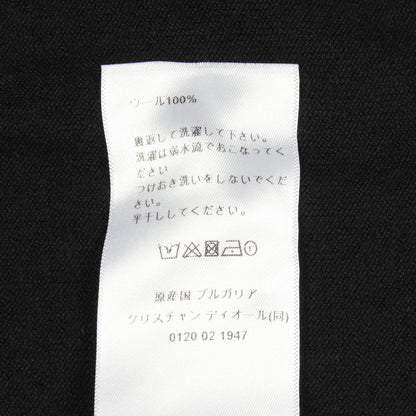 ウール100%
裏返して洗濯して下さい。
洗濯は弱水流でおこなってく
ださい
つけおき洗いをしないでくだ
さい。
平干ししてください。
原産国 ブルガリア
クリスチャン ディオール(同)
0120 02 1947